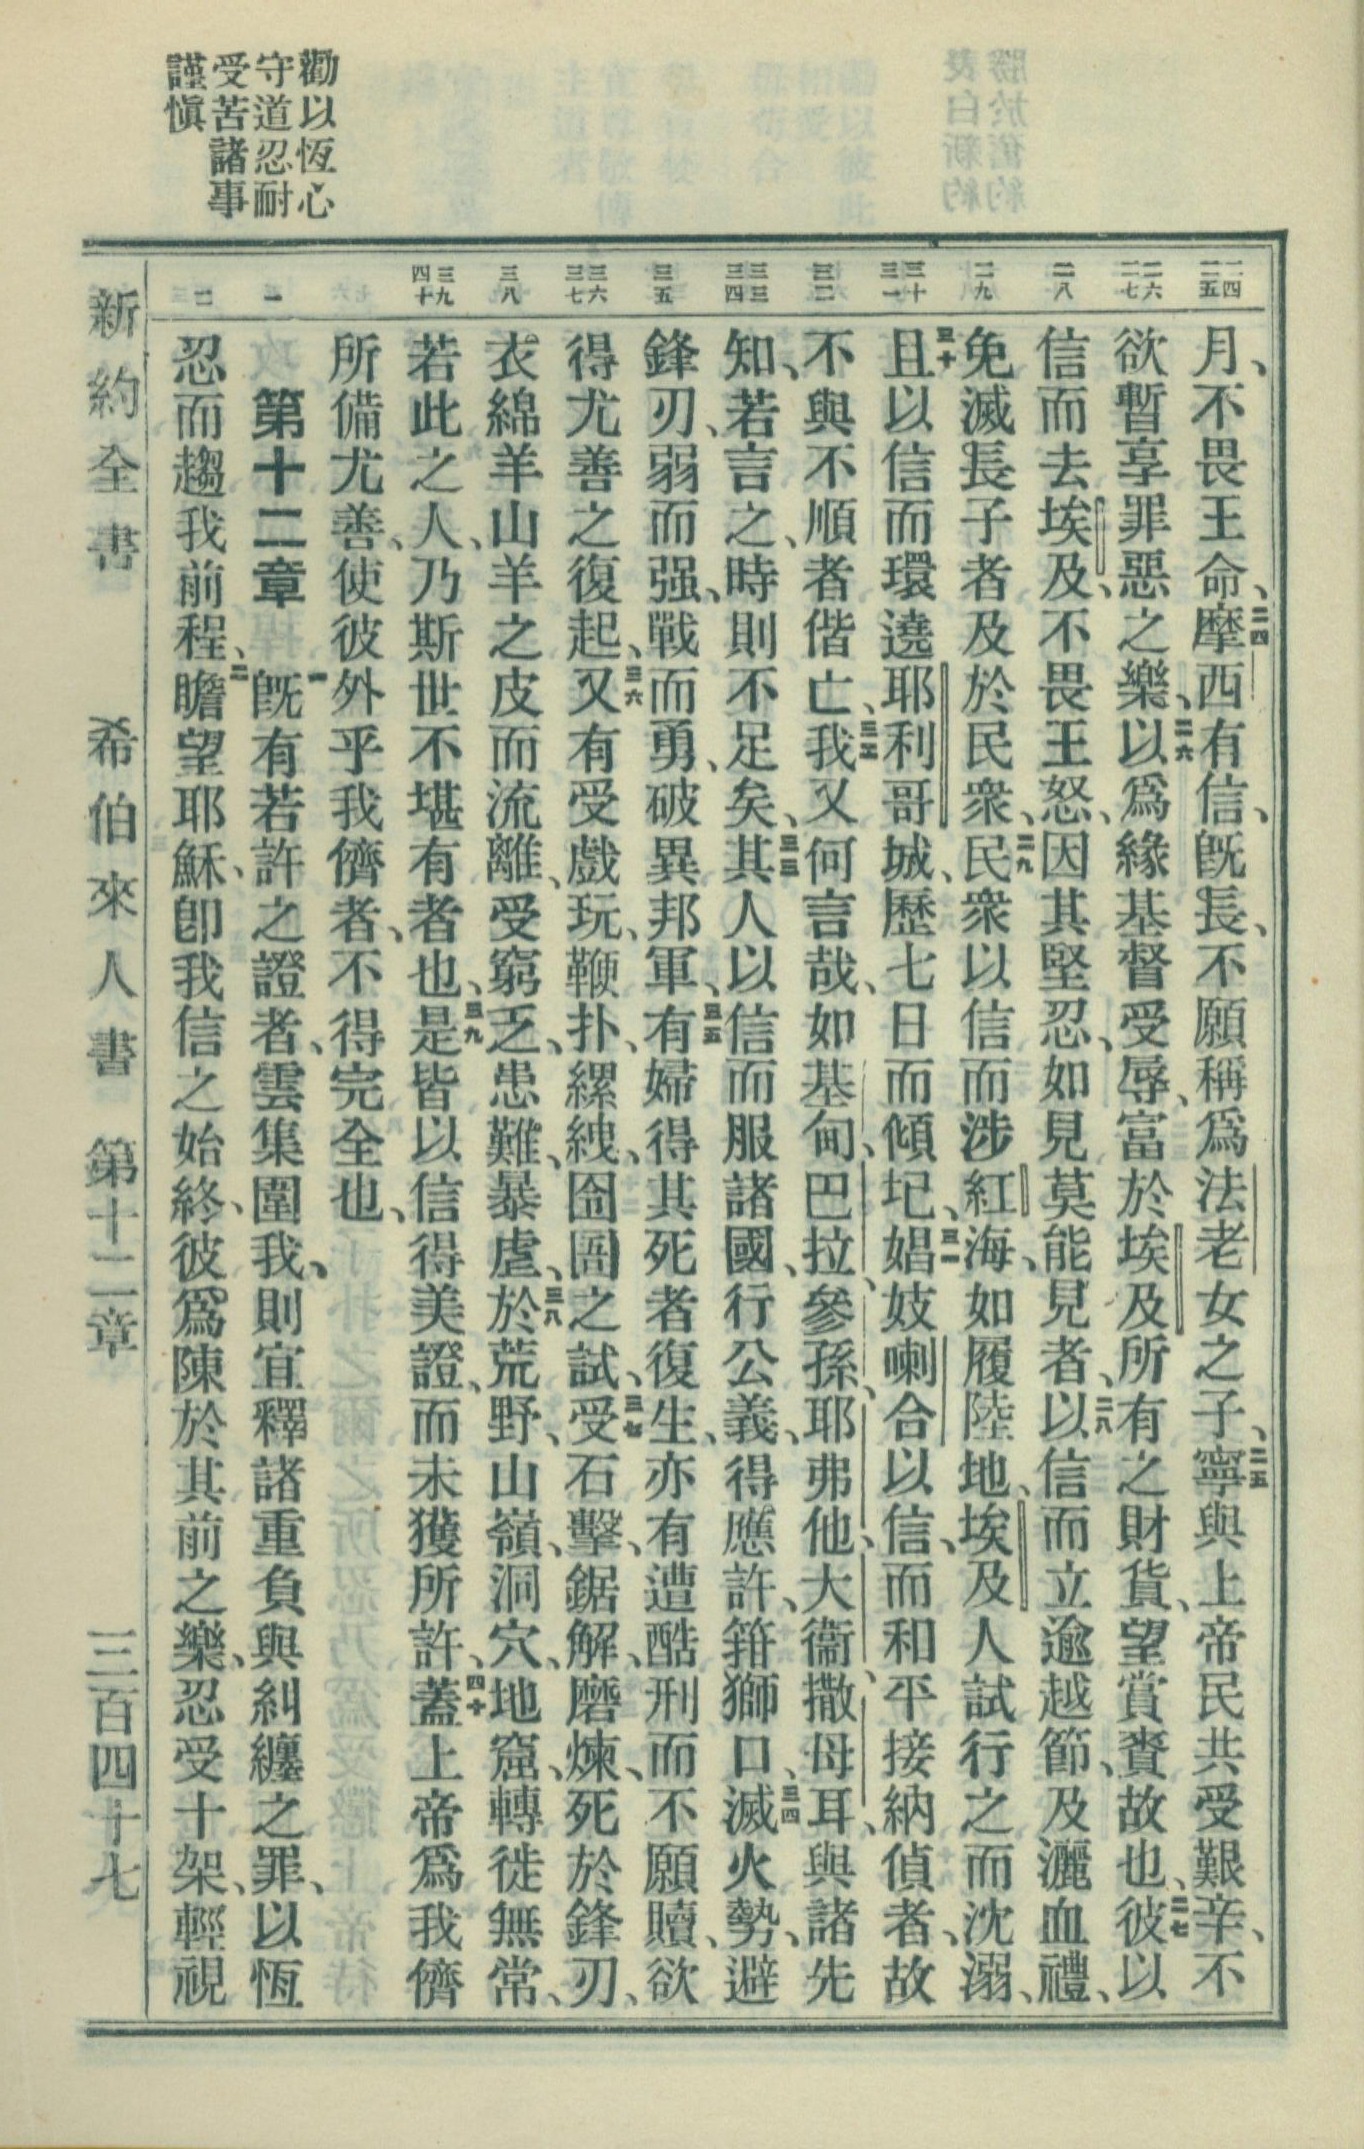 勸以恆心
守道忍耐
受苦諸事
謹愼
二四 二五
二六 二七
二八
二九
三十 三一
三二
三三 三四
三五
三六 三七
三八
三九 四十
一
二
月、不畏王命、二四摩西有信、旣長、不願稱爲法老女之子、二五寧與上帝民共受艱辛、不
欲暫享罪惡之樂、二六以爲緣基督受辱、富於埃及所有之財貨、望賞賚故也、二七彼以
信而去埃及、不畏王怒、因其堅忍、如見莫能見者、二八以信而立逾越節、及灑血禮、
免滅長子者及於民衆、二九民衆以信而涉紅海、如履陸地、埃及人試行之而沈溺、
三十且以信而環遶耶利哥城、歷七日而傾圮、三一娼妓喇合以信、而和平接納偵者、故
不與不順者偕亡、三二我又何言哉、如基甸、巴拉、參孫、耶弗他、大衞、撒母耳、與諸先
知、若言之、時則不足矣、三三其人以信而服諸國、行公義、得應許、箝獅口、三四滅火勢、避
鋒刃、弱而强、戰而勇、破異邦軍、三五有婦得其死者復生、亦有遭酷刑而不願贖、欲
得尤善之復起、三六又有受戲玩、鞭扑、縲絏、囹圄之試、三七受石擊、鋸解、磨煉、死於鋒刃、
衣綿羊山羊之皮而流離、受窮乏、患難、暴虐、三八於荒野、山嶺、洞穴、地窟、轉徙無常、
若此之人、乃斯世不堪有者也、三九是皆以信得美證、而未獲所許、四十蓋上帝爲我儕
所備尤善、使彼外乎我儕者、不得完全也、
第十二章 一旣有若許之證者、雲集圍我、則宜釋諸重負與糾纏之罪、以恆
忍而趨我前程、二瞻望耶穌、卽我信之始終、彼爲陳於其前之樂、忍受十架、輕視
新約全書 希伯來人書 第十二章 三百四十七